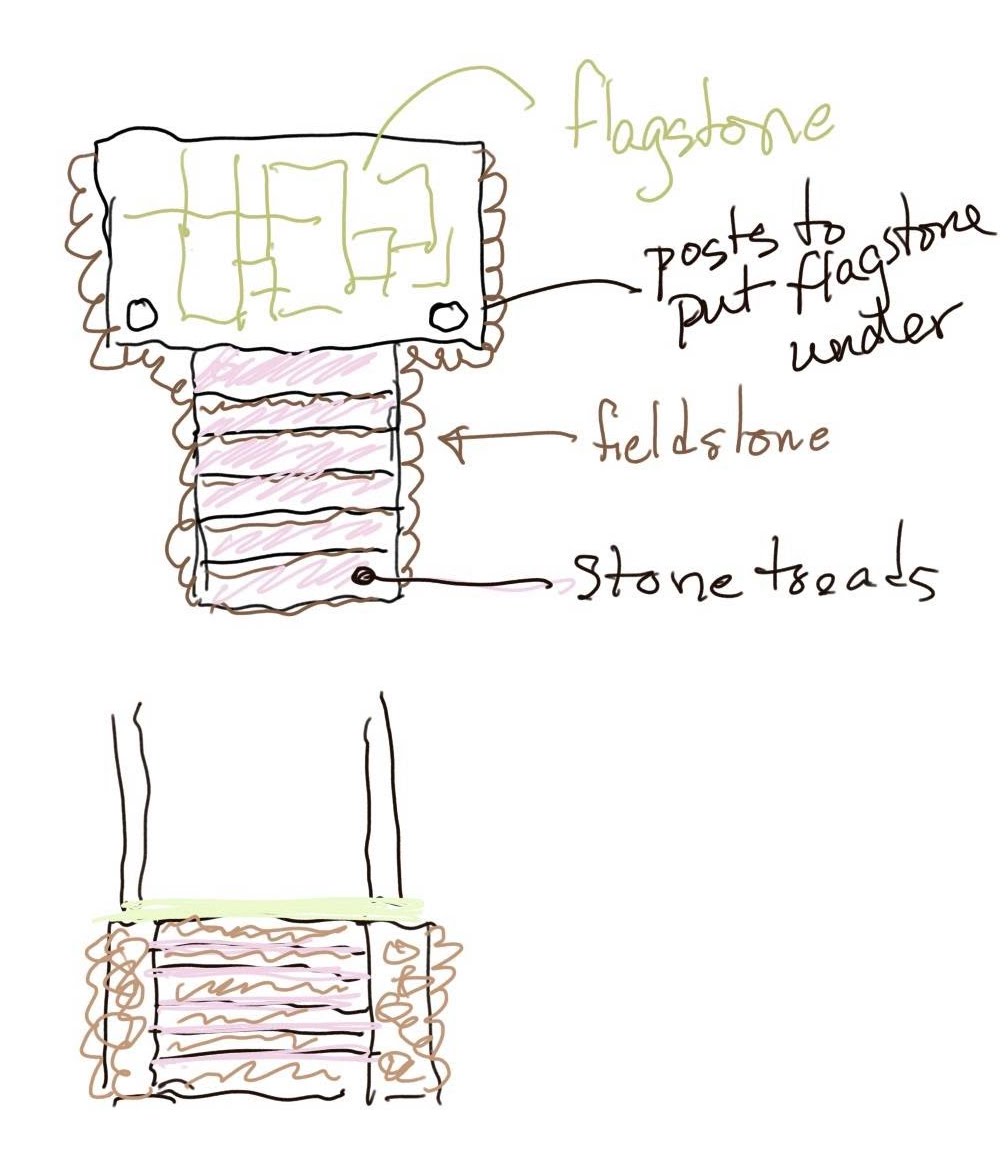 flagstone
posts to
put flagstone
under
fieldstone
stone treads